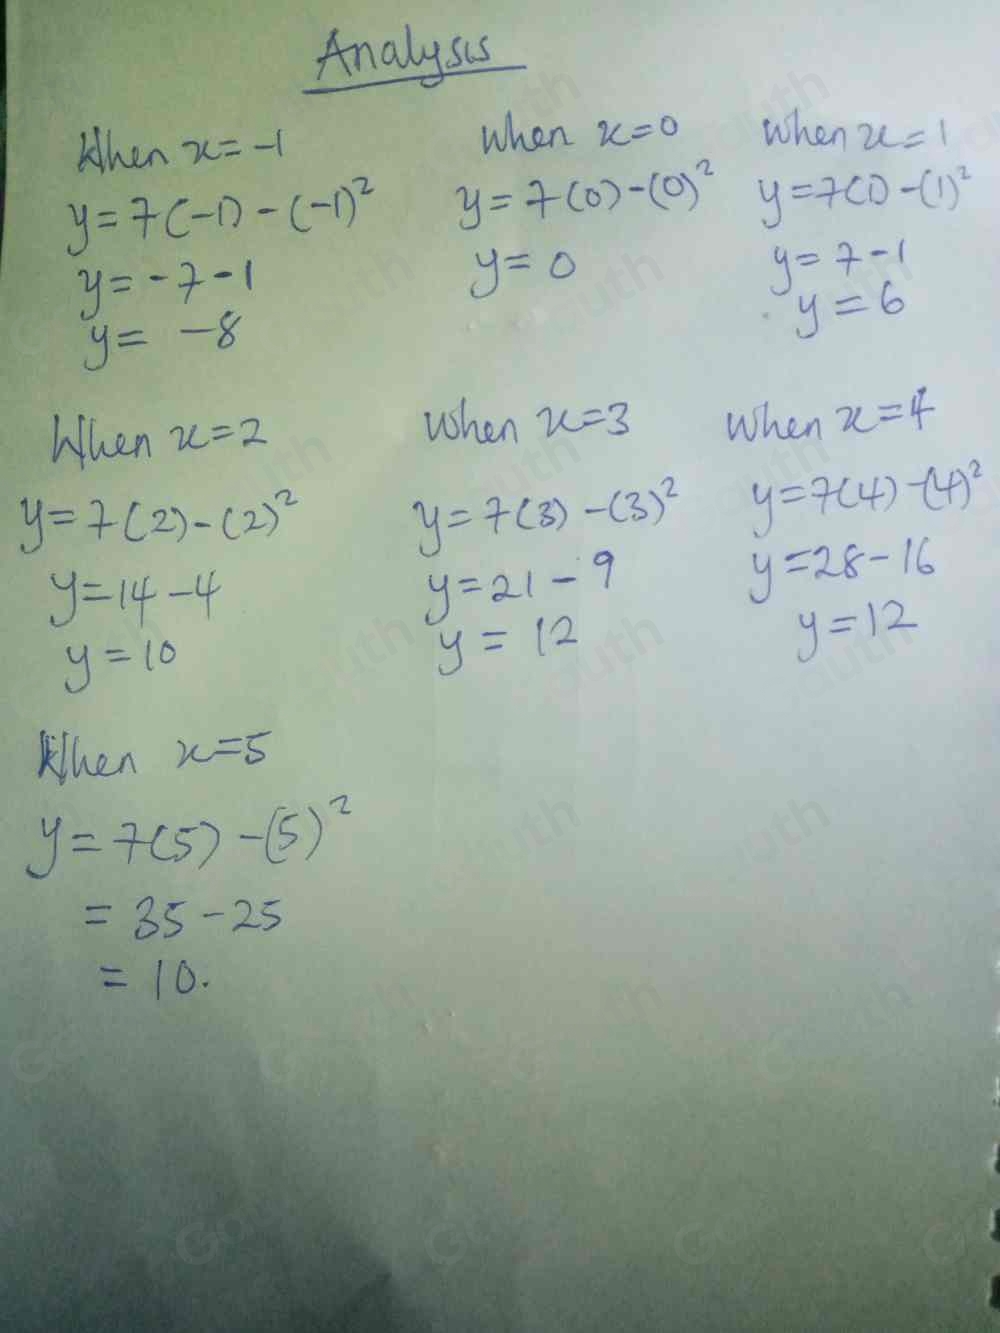 Analysis
When x=-1
y=7(-1)-(-1)²
y=-7-1
y= -8
When x=0
y=7(0)-(0)²
y=0
When x=1
y=7(1)-(1)²
y=7-1
y=6
When x=2
y=7(2)-(2)²
y=14-4
y=10
When x=3
y=7(3)-(3)²
y=21-9
y=12
When x=4
y=7(4)-(4)²
y=28-16
y=12
When x=5
y=7(5)-(5)²
=35-25
=10.